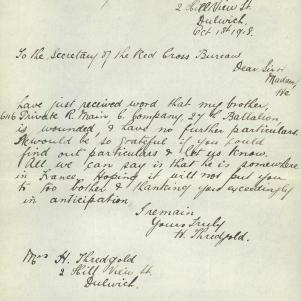 2 Hill View St.
Dulwich.
Oct 1st 1918.
To the Secretary of the Red Cross Bureau
Dear Sir
Madam,
We
have just received word that my brother,
6116 Private R. Main C. Company, 27th Battalion
is wounded, & have no further particulars.
We would be so grateful if you could
find out particulars & let us know.
All we can say is that he is somewhere
in France. Hoping it will not put you
to too bother & thanking you exceedingly
in anticipation.
I remain
Yours Truly
H. Thredgold.
Mrs H. Thredgold
2 Hill View St.
Dulwich.